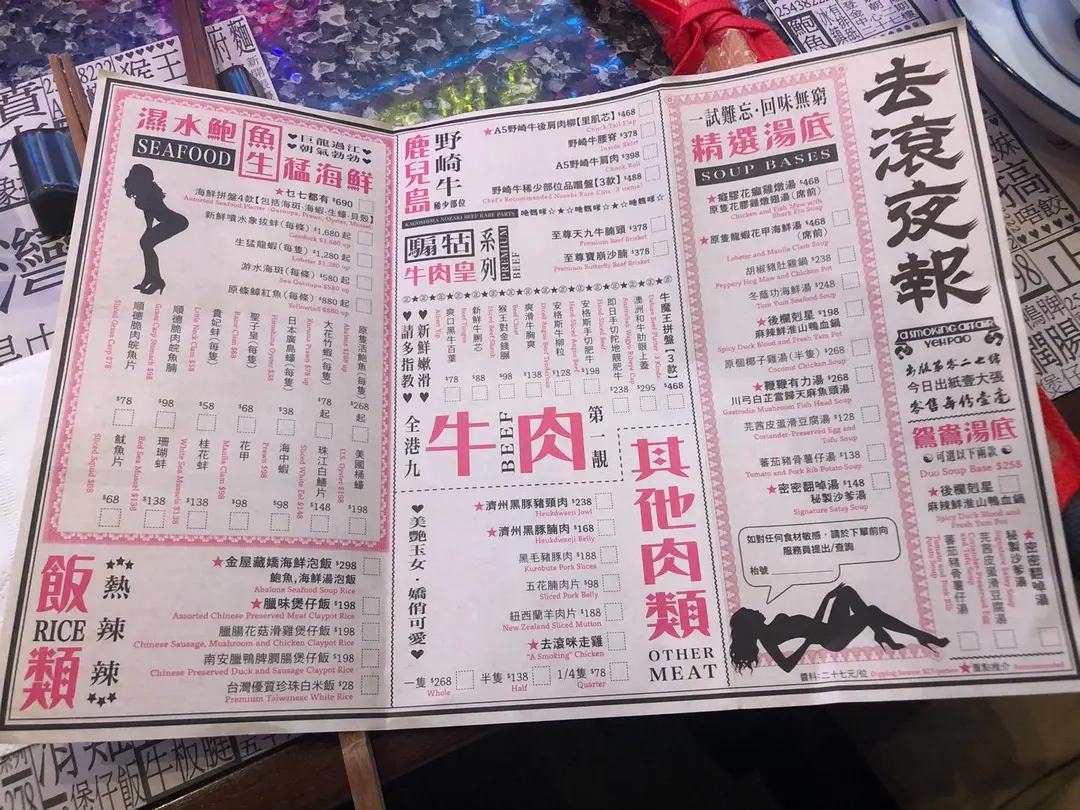 濕水鮑魚
生猛海鮮
SEAFOOD
♥巨龍過江♥
朝氣勃勃
★乜七都有 $690
海鮮拼盤4款【包括海斑·海蝦·生蠔·貝類】
Assorted Seafood Platter (Garoupa, Prawn, Oyster, Mussel)
新鮮噴水象拔蚌(每條) $1,680 起
Geoduck $1,680 up
生猛龍蝦(每隻) $1,280 起
Lobster $1,280 up
游水海斑(每條) $580 起
Sea Garoupa $580 up
原條鰤紅魚(每條) $880 起
Yellowtail $880 up
原隻活鮑魚(每隻) $268 起
Abalone $268 up
大花竹蝦(每隻) $78 起
Kuruma Prawn $78 up
日本廣島蠔(每隻) $38
Hiroshima Oyster $38
聖子皇(每隻) $68
Razor Clam $68
貴妃蚌(每隻) $58
Little Neck Clam $58
順德脆肉皖魚腩 $98
Grass Carp Stomach $98
順德脆肉皖魚片 $78
Sliced Grass Carp $78
美國桶蠔 $198
U.S. Oyster $198
珠江白鱔片 $148
Sliced White Eel $148
海中蝦 $98
Prawn $98
花甲 $98
Manila Clam $98
桂花蚌 $138
White Sea Mussels $138
珊瑚蚌 $138
Red Sea Mussel $138
魷魚片 $68
Sliced Squid $68
飯類
RICE
熱辣辣
★金屋藏嬌海鮮泡飯 $298
鮑魚,海鮮湯泡飯
Abalone Seafood Soup Rice
★臘味煲仔飯 $198
Assorted Chinese Preserved Meat Claypot Rice
臘腸花菇滑雞煲仔飯 $198
Chinese Sausage, Mushroom and Chicken Claypot Rice
南安臘鴨脾膶腸煲仔飯 $198
Chinese Preserved Duck and Sausage Claypot Rice
台灣優質珍珠白米飯 $28
Premium Taiwanese White Rice
鹿兒島
野崎牛
稀少部位
KAGOSHIMA NOZAKI BEEF RARE PARTS
★A5野崎牛後肩肉柳【里肌芯】 $468
Chuck Tail Flap
野崎牛腰脊 $378
Inside Skirt
A5野崎牛肩肉 $398
Chuck Roll
野崎牛稀少部位品嚐盤【3款】 $488
Chef's Recommended Nozaki Rare Cuts "3 items"
騸牯
牛肉皇
系列
PREMIUM BEEF
至尊天九牛腩頭 $378
Premium Beef Brisket
至尊寶崩沙腩 $378
Premium Butterfly Beef Brisket
牛魔王拼盤【3款】 $468
澳洲和牛肋眼上蓋 $295
即日本地手切肥牛 $238
安格斯手切肥牛 $198
安格斯牛柳粒 $128
爽骨牛胸爽 $138
猴家對金錢腱 $98
新鮮牛脷芯 $88
爽口黑牛百葉 $78
♥新鮮嫩滑♥
♥請多指教♥
全港九
牛肉
BEEF
第一靚
其他肉類
OTHER MEAT
♥美艷玉女·嬌俏可愛♥
★濟州黑豚豬頸肉 $238
Heukdwaeji Jowl
★濟州黑豚腩肉 $168
Heukdwaeji Belly
黑毛豬豚肉 $188
Kurobuta Pork Slices
五花腩肉片 $98
Sliced Pork Belly
紐西蘭羊肉片 $188
New Zealand Sliced Mutton
★去滾咪走雞
"A Smoking" Chicken
一隻 $268
Whole
半隻 $138
Half
1/4隻 $78
Quarter
一試難忘·回味無窮
精選湯底
SOUP BASES
★癡膠花膠雞燉湯 $468
原隻花膠雞燉翅湯(席前)
Chicken and Fish Maw with Shark Fin Soup
★原隻龍蝦花甲海鮮湯 $468
(席前)
Lobster and Manila Clam Soup
胡椒豬肚雞鍋 $238
Peppery Hog Maw and Chicken Pot
冬蔭功海鮮湯 $248
Tom Yum Seafood Soup
★後欄剋星 $198
麻辣鮮淮山鴨血鍋
Spicy Duck Blood and Fresh Yam Pot
原個椰子雞湯(半隻) $268
Coconut Chicken Pot
★鞭鞭有力湯 $268
川弓白芷當歸天麻魚頭湯
Gastrodia Mushroom Fish Head Soup
芫茜皮蛋滑豆腐湯 $128
Coriander-Preserved Egg and Tofu Soup
蕃茄豬骨薯仔湯 $138
Tomato and Pork Rib Potato Soup
★密密翻啅湯 $148
秘製沙爹湯
Signature Satay Soup
如對任何食材敏感，請於下單前向服務員提出/查詢
枱號
去滾夜報
A SMOKING AFFAIR
YEH PAO
出版第零二七綫
今日出紙壹大張
零售每份壹毫
鴛鴦湯底
♥可選以下兩款♥
Duo Soup Base $258
★後欄剋星
麻辣鮮淮山鴨血鍋
Spicy Duck Blood and Fresh Yam Pot
★密密翻啅湯
秘製沙爹湯
芫茜皮蛋滑豆腐湯
蕃茄豬骨薯仔湯
★重點推介 Recommended
醬料:二十七元/位 Dipping Sauces: $27/person